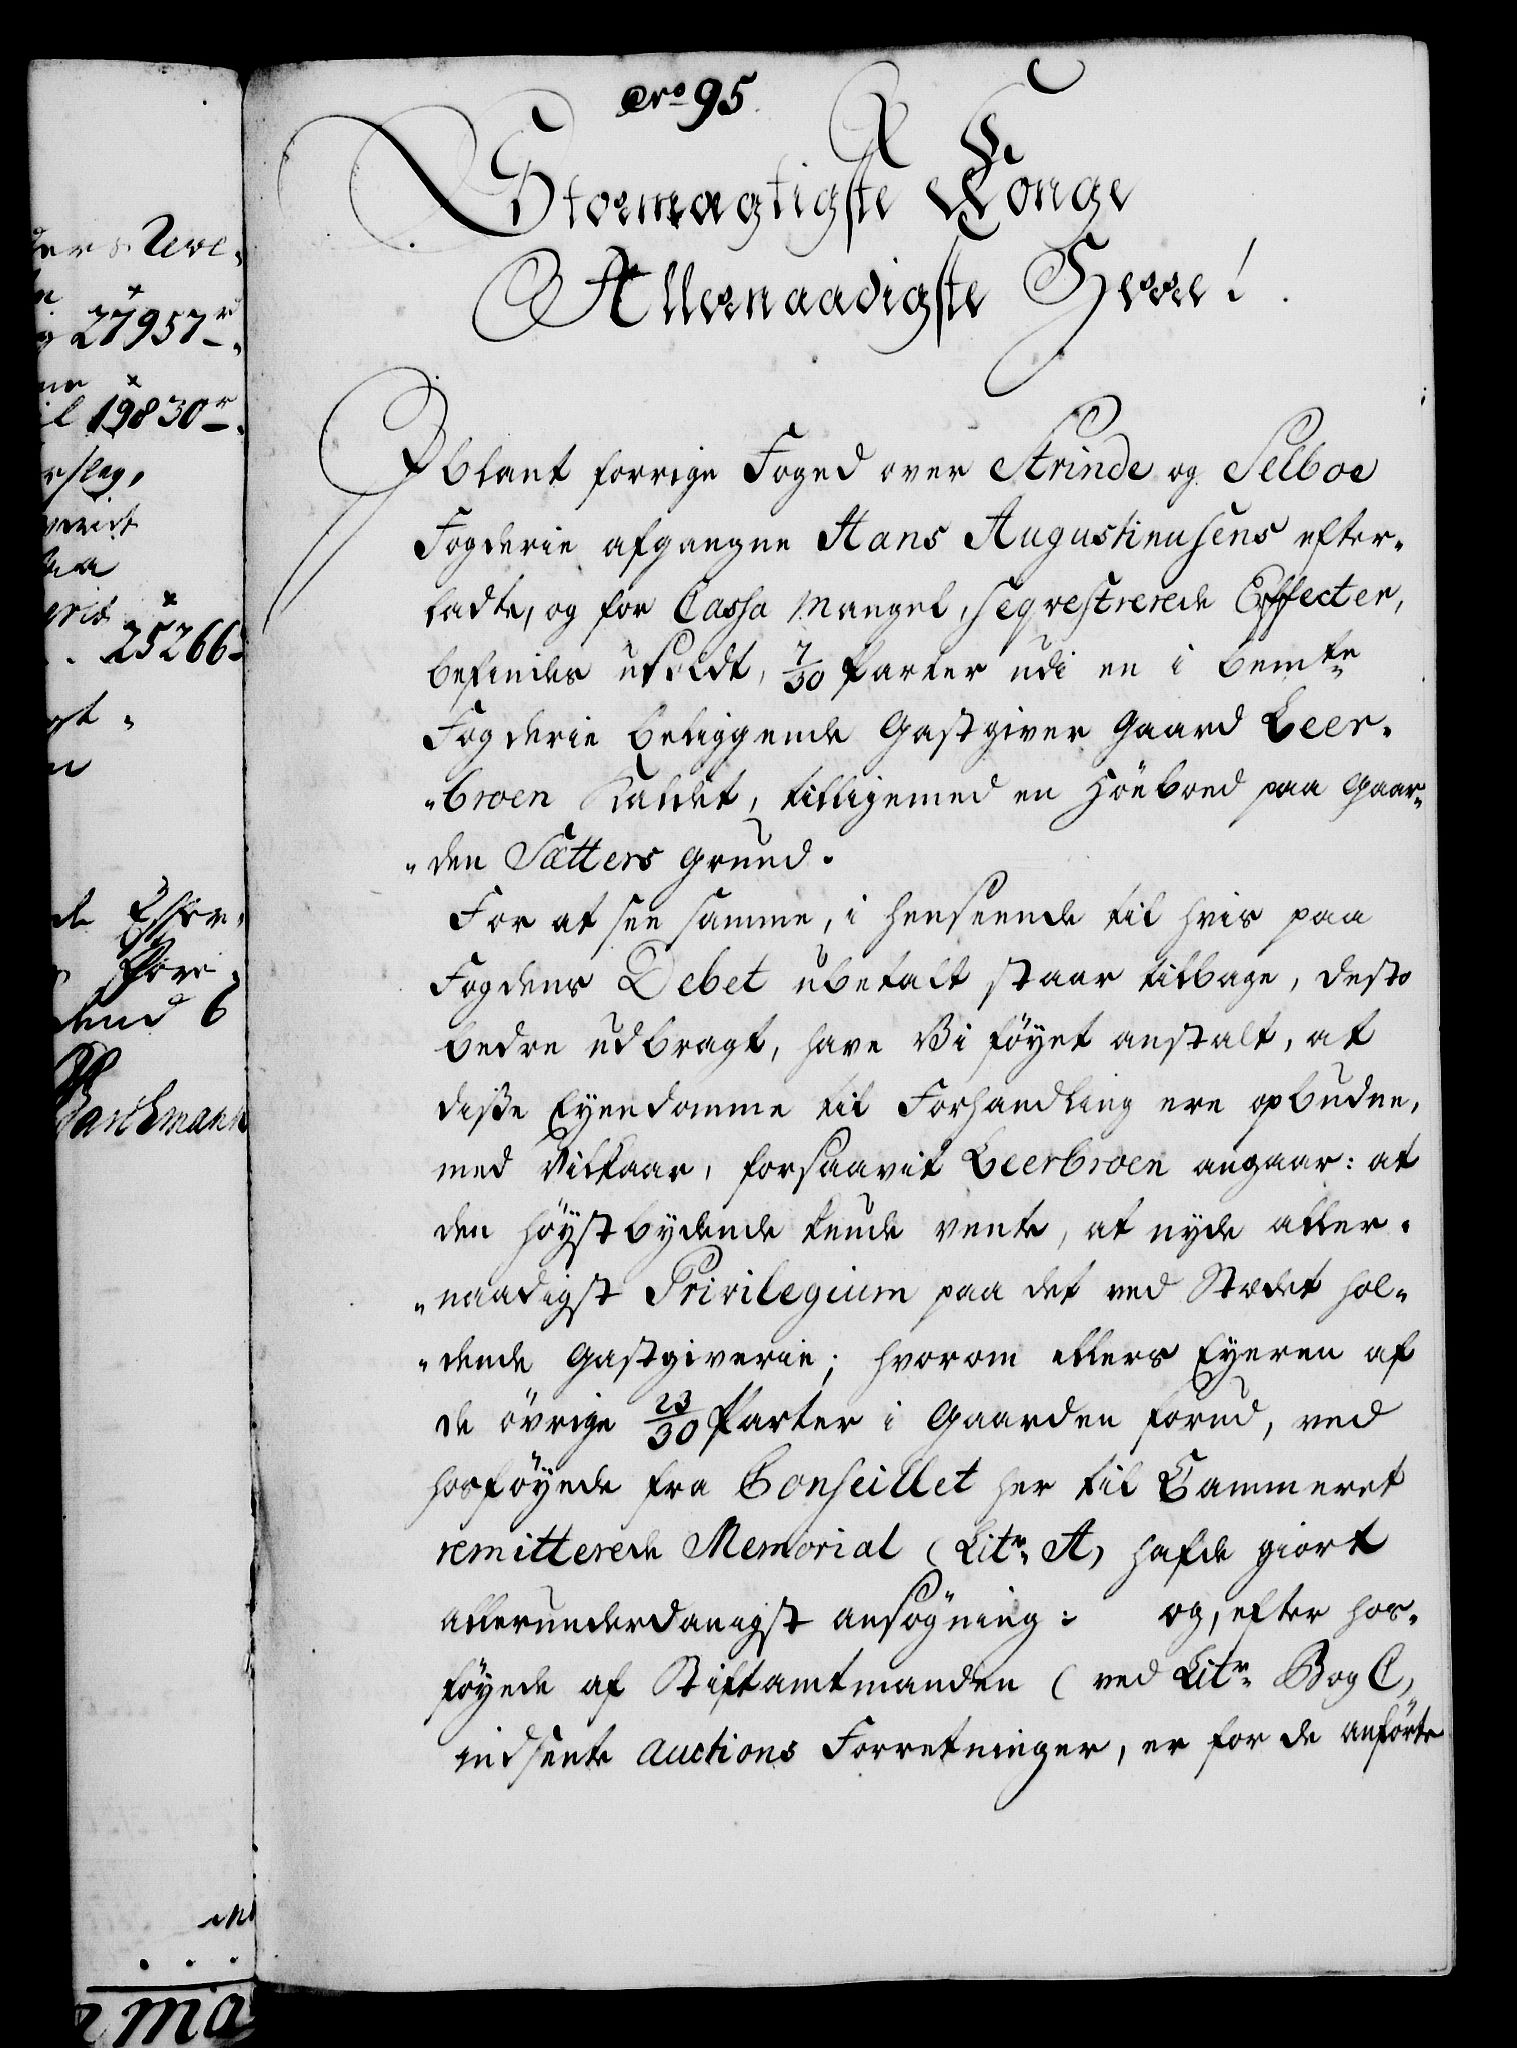 Nro 95.
Stormægtigste Konge
Allernaadigste Herre!
Iblant forrige Foged over Strinde og Selboe
Fogderie afgangne Hans Augustinusens efter-
ladte, og for Cassa Mangel, seqvestrerede Effecter,
befindes usoldt, 7/30 Parter udi en i bemte
Fogderie beliggende Gastgiver Gaard Leer-
"broen kaldet, tilligemed en Höeboed paa Gaar-
"den Sætters Grund.
For at see samme, i henseende til hvis paa
Fogdens Debet ubetalt staar tilbage, desto
bedre udbragt, have Vi föyet anstalt, at
diße Eyendomme til Forhandling ere opbudne,
med Vilkaar, forsaavit Leerbroen angaar: at
den höystbydende kunde vente, at nyde aller-
"naadigst Privilegium paa det ved Stædet hol-
"dende Gastgiverie; hvorom ellers Eyeren af
de övrige 23/30 Parter i Gaarden forud, ved
hosföyede fra Conseillet her til Cammeret
remitterede Memorial (Litr. A) hafde giort
allerunderdanigst ansögning: og, efter hos-
föyede af Stiftamtmanden (ved Litr. B og C)
indsente Auctions Forretninger, er for de anförte
ders Reve-
27957r
il 19830r
rslag,
25266
de Efter-
dend 6
Barchmann
ma